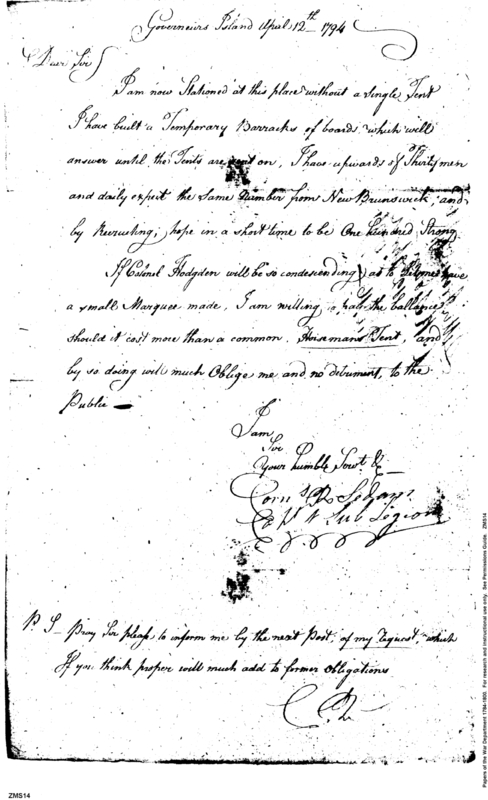 Governeurs Island April 12th 1794
Dear Sir
I am now Stationed at this place without a single Tent
I have built a Temporary Barracks of boards which will
answer until the Tents are sent on, I have upwards of Thirty men
and daily expect the Same Number from New Brunswick, and
by Recruiting, hope in a short time to be One hundred Strong
If Colonel Hodgden will be so condescending as to let me have
a small Marquee made, I am willing to pay the ballance
should it cost more than a common Horsemans Tent, and
by so doing will much Oblige me and no detriment, to the
Public
I am
Sir
Your humble Servt &
Corns R Sedam
Capt 4 Sub Legion
P S Pray Sir please to inform me by the next Post, of my request, which
If you think proper will much add to former obligations
C R
Papers of the War Department 1784-1800. For research and instructional use only. See Permissions Guide. ZMS14
ZMS14